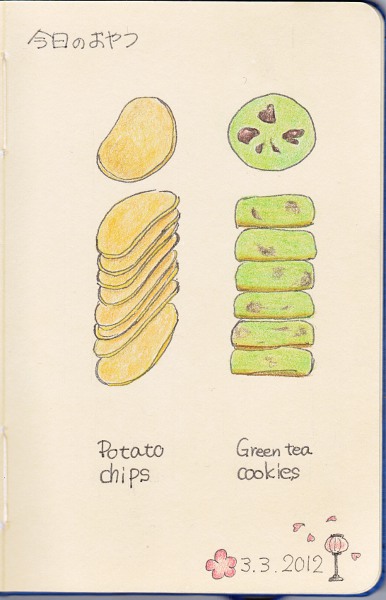 今日のおやつ
Potato
chips
Green tea
cookies
3.3.2012